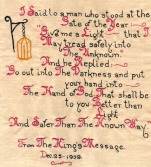 I Said to a man who stood at the
Gate of the Year
Give me a Light that I
May tread safely into
The Unknown
And he Replied
Go out into The Darkness and put
your hand into
The Hand of God That shall be
to you Better than
Light
And Safer Than The Known Way.
From The King's Message.
Dec. 25. 1939.